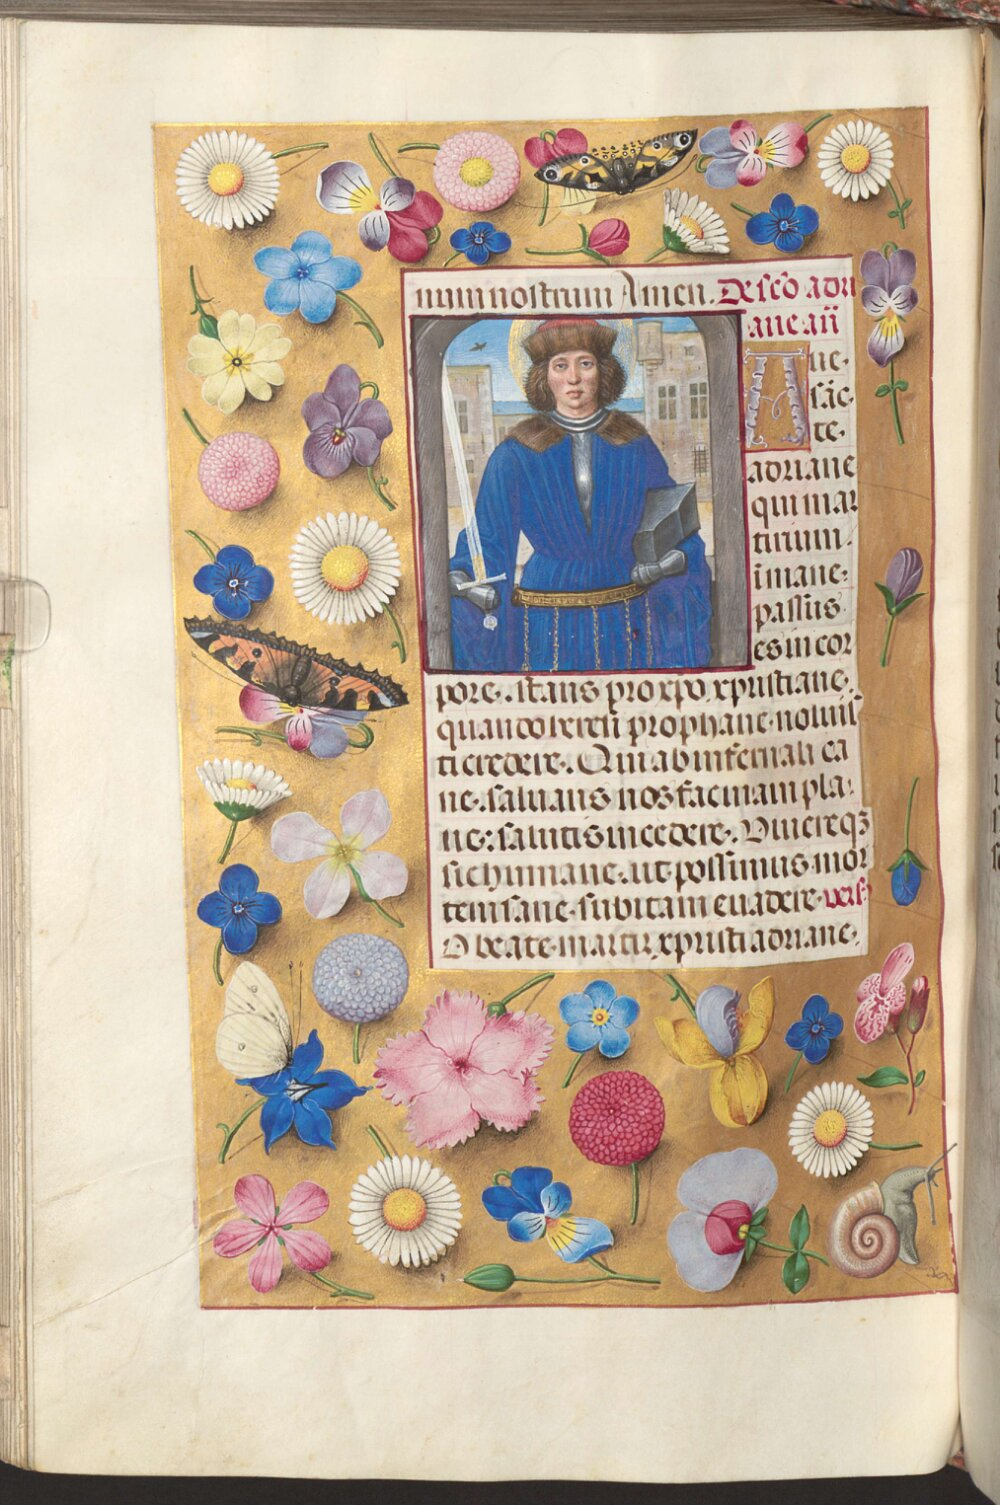 num nostrum Amen. De scō adri
ane añ
Aue
sāc
te
adriane
qui mar
tirium
īmane
passus
es in cor
pore. stans pro xpo xpristiane.
quando prophane noluis
ti credere. Qui ab infernali ca
ne. saluans nos fac in am pla
ne: sanctis incedere. Viuereqꝫ
sic humane. ut possimus mor
tem sane. subitam euadere. vers
O beate martir xpristi adriane.